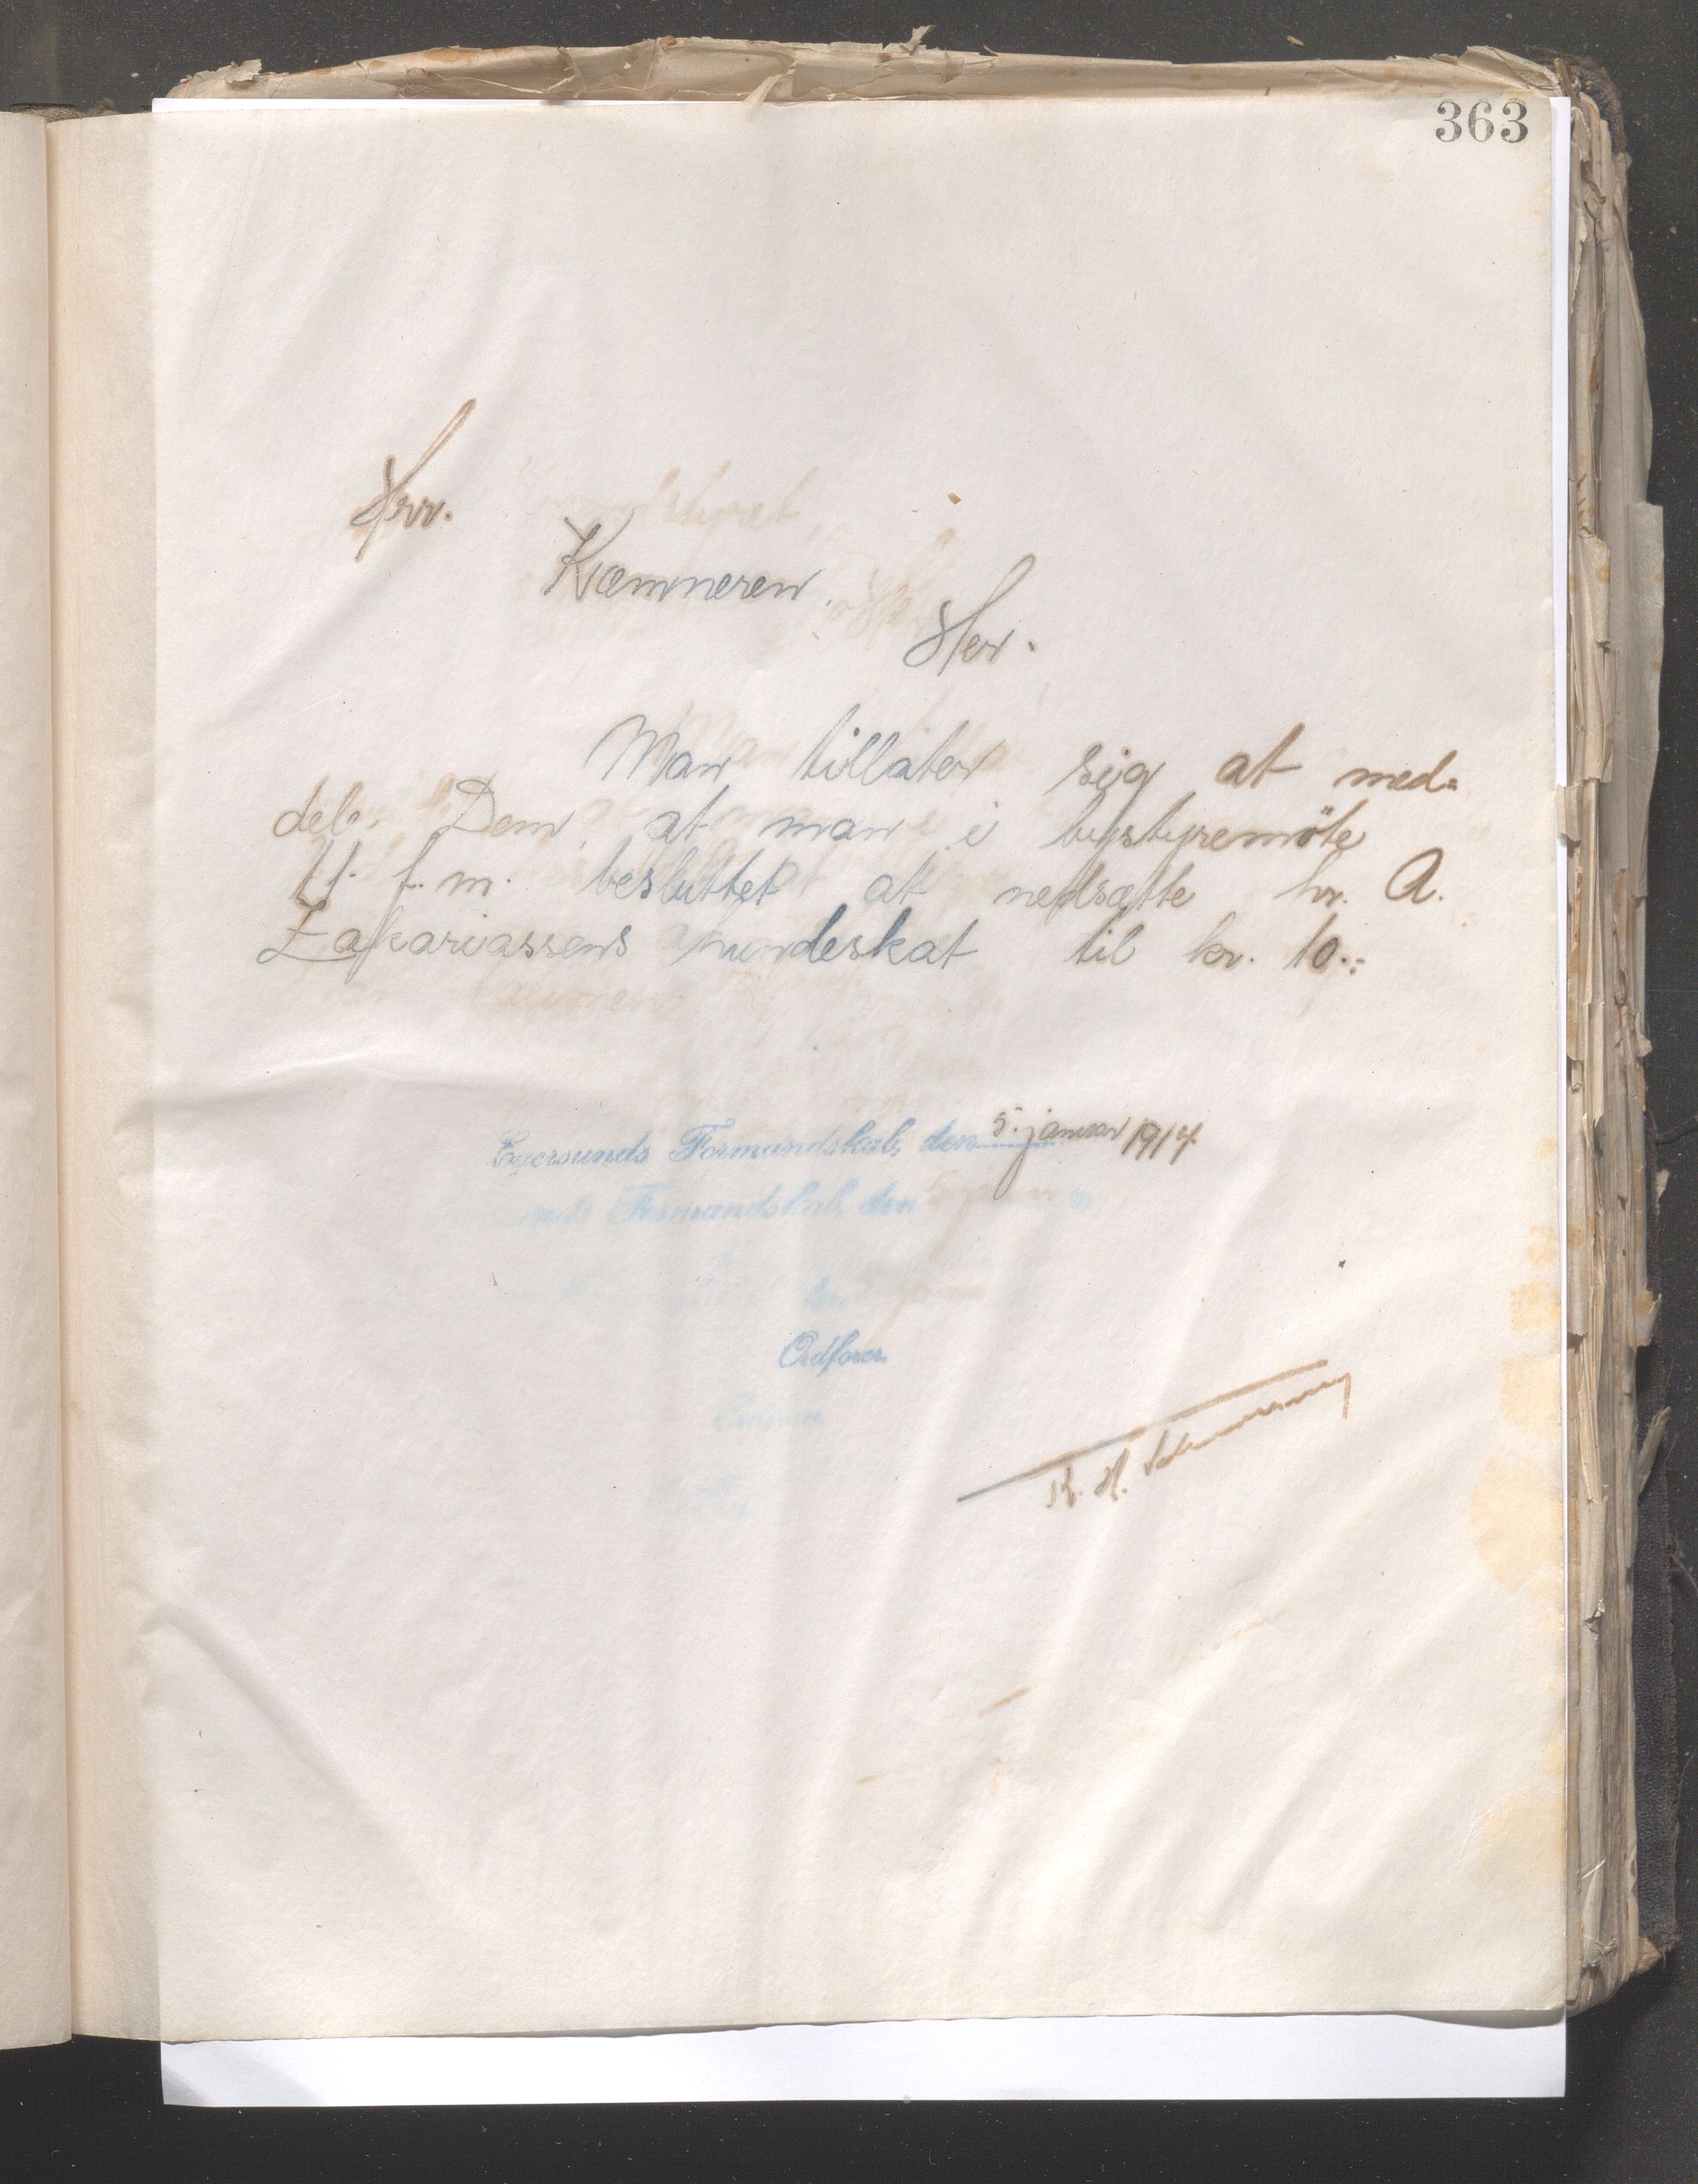 363
Hrr.
Kæmneren.
Her.
Man tillater sig at med=
dele Dem, at man i bystyremöte
f. m. besluttet at nedsætte hr. A.
Zakariassens hundeskat til kr. 10.-
Egersunds Formandskab, den 5. januar 1914.
Formandskab, den
Ordfører
K. H.